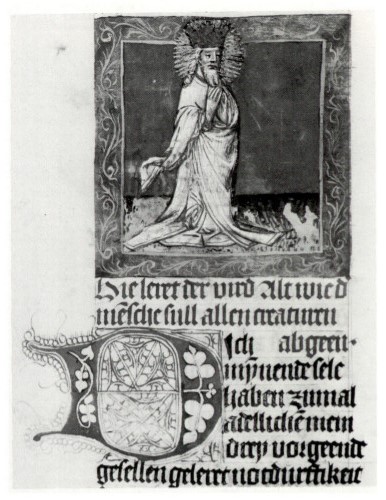 Hie leret der vird Alt wie d
mēsche sull allen craturen
Dich abgeen⸗
mynnende sele
haben zumal
adellichē mein
drey vorgeende
gesellen geleret